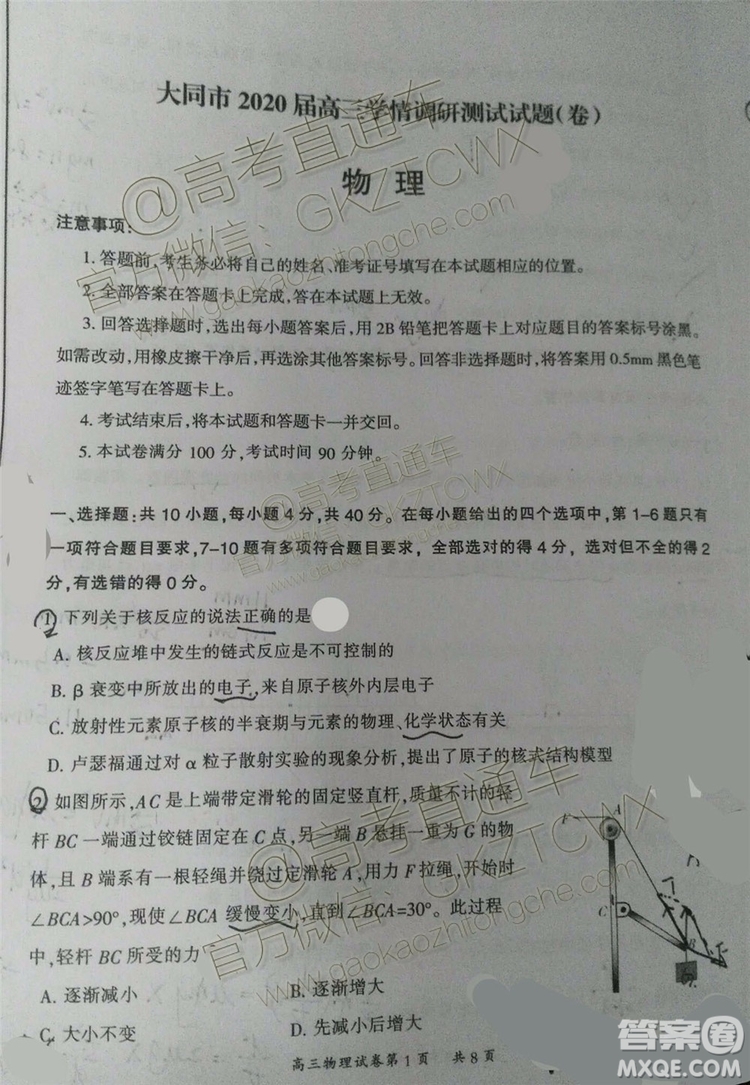 大同市 2020 届高三学情调研测试试题(卷)
物 理
注意事项:
1. 答题前,考生务必将自己的姓名、准考证号填写在本试题相应的位置。
2. 全部答案在答题卡上完成,答在本试题上无效。
3. 回答选择题时,选出每小题答案后,用 2B 铅笔把答题卡上对应题目的答案标号涂黑。
如需改动,用橡皮擦干净后,再选涂其他答案标号。回答非选择题时,将答案用 0.5mm 黑色笔
迹签字笔写在答题卡上。
4. 考试结束后,将本试题和答题卡一并交回。
5. 本试卷满分 100 分,考试时间 90 分钟。
一、选择题:共 10 小题,每小题 4 分,共 40 分。在每小题给出的四个选项中,第 1-6 题只有
一项符合题目要求,7-10 题有多项符合题目要求, 全部选对的得 4 分, 选对但不全的得 2
分,有选错的得 0 分。
1. 下列关于核反应的说法正确的是
A. 核反应堆中发生的链式反应是不可控制的
B. β 衰变中所放出的电子,来自原子核外内层电子
C. 放射性元素原子核的半衰期与元素的物理、化学状态有关
D. 卢瑟福通过对 α 粒子散射实验的现象分析,提出了原子的核式结构模型
2. 如图所示,AC 是上端带定滑轮的固定竖直杆,质量不计的轻
杆 BC 一端通过铰链固定在 C 点,另一端 B 悬挂一重为 G 的物
体,且 B 端系有一根轻绳并绕过定滑轮 A,用力 F 拉绳,开始时
∠BCA>90°,现使∠BCA 缓慢变小,直到∠BCA=30°。此过程
中,轻杆 BC 所受的力
F
A
C
B
A. 逐渐减小 B. 逐渐增大
C. 大小不变 D. 先减小后增大
高三物理试卷第 1 页 共 8 页
@高考直通车
官方微信: GKZTCWX
www.gaokaozhitongche.com
@高考直通车
官方微信: GKZTCWX
www.gaokaozhitongche.com
@高考直通车
官方微信: GKZTCWX
www.gaokaozhitongche.com
答案圈
MXQE.COM